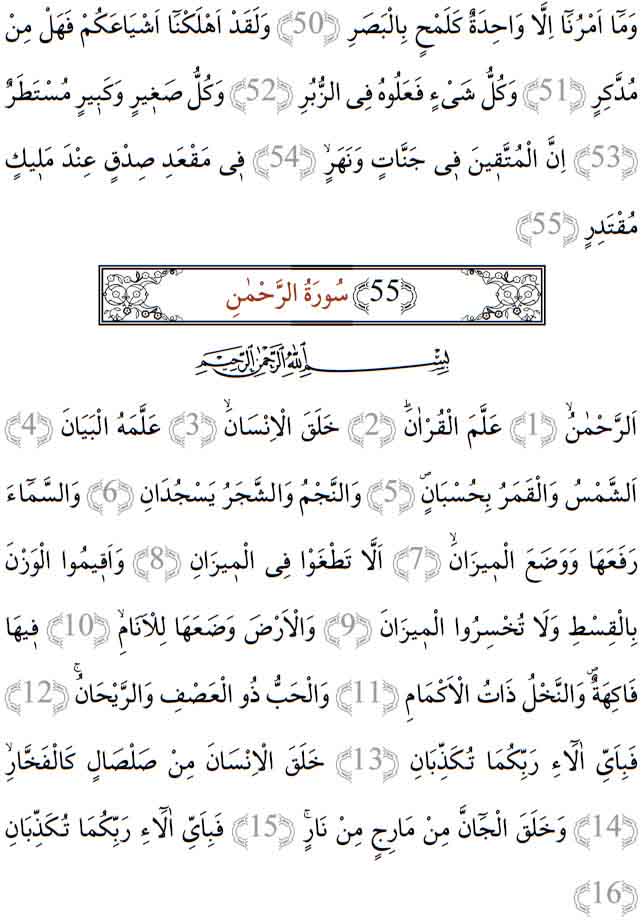 وَمَٓا اَمْرُنَٓا اِلَّا وَاحِدَةٌ كَلَمْحٍ بِالْبَصَرِ ﴿50﴾ وَلَقَدْ اَهْلَكْنَٓا اَشْيَاعَكُمْ فَهَلْ مِنْ
مُدَّكِرٍ ﴿51﴾ وَكُلُّ شَىْءٍ فَعَلُوهُ فِى الزُّبُرِ ﴿52﴾ وَكُلُّ صَغ۪يرٍ وَكَب۪يرٍ مُسْتَطَرٌ
﴿53﴾ اِنَّ الْمُتَّق۪ينَ ف۪ى جَنَّاتٍ وَنَهَرٍۙ ﴿54﴾ ف۪ى مَقْعَدِ صِدْقٍ عِنْدَ مَل۪يكٍ
مُقْتَدِرٍ ﴿55﴾
﴿55﴾ سُورَةُ الرَّحْمٰنِ
بِسْمِ اللّٰهِ الرَّحْمٰنِ الرَّحِيمِ
اَلرَّحْمٰنُۙ ﴿1﴾ عَلَّمَ الْقُرْاٰنَۜ ﴿2﴾ خَلَقَ الْاِنْسَانَۙ ﴿3﴾ عَلَّمَهُ الْبَيَانَ ﴿4﴾
اَلشَّمْسُ وَالْقَمَرُ بِحُسْبَانٍۖ ﴿5﴾ وَالنَّجْمُ وَالشَّجَرُ يَسْجُدَانِ ﴿6﴾ وَالسَّمَٓاءَ
رَفَعَهَا وَوَضَعَ الْم۪يزَانَۙ ﴿7﴾ اَلَّا تَطْغَوْا فِى الْم۪يزَانِ ﴿8﴾ وَاَق۪يمُوا الْوَزْنَ
بِالْقِسْطِ وَلَا تُخْسِرُوا الْم۪يزَانَ ﴿9﴾ وَالْاَرْضَ وَضَعَهَا لِلْاَنَامِۙ ﴿10﴾ ف۪يهَا
فَاكِهَةٌۖ وَالنَّخْلُ ذَاتُ الْاَكْمَامِ ﴿11﴾ وَالْحَبُّ ذُو الْعَصْفِ وَالرَّيْحَانُۚ ﴿12﴾
فَبِاَىِّ اٰلَٓاءِ رَبِّكُمَا تُكَذِّبَانِ ﴿13﴾ خَلَقَ الْاِنْسَانَ مِنْ صَلْصَالٍ كَالْفَخَّارِۙ
﴿14﴾ وَخَلَقَ الْجَٓانَّ مِنْ مَارِجٍ مِنْ نَارٍۚ ﴿15﴾ فَبِاَىِّ اٰلَٓاءِ رَبِّكُمَا تُكَذِّبَانِ
﴿16﴾